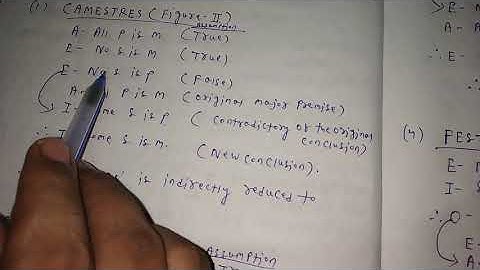 (1) CAMESTRES (Figure-II)
Assumption
A- All P is M (True)
E- No S is M (True)
E- No S is P (False)
A- P is M (Original major premise)
I- Some S is P (Contradictory of the original conclusion)
∴ I- Some S is M. (New conclusion).
is indirectly reduced to
Assumption
(4) FES
E-
I- S
∴ O-
E-
A-